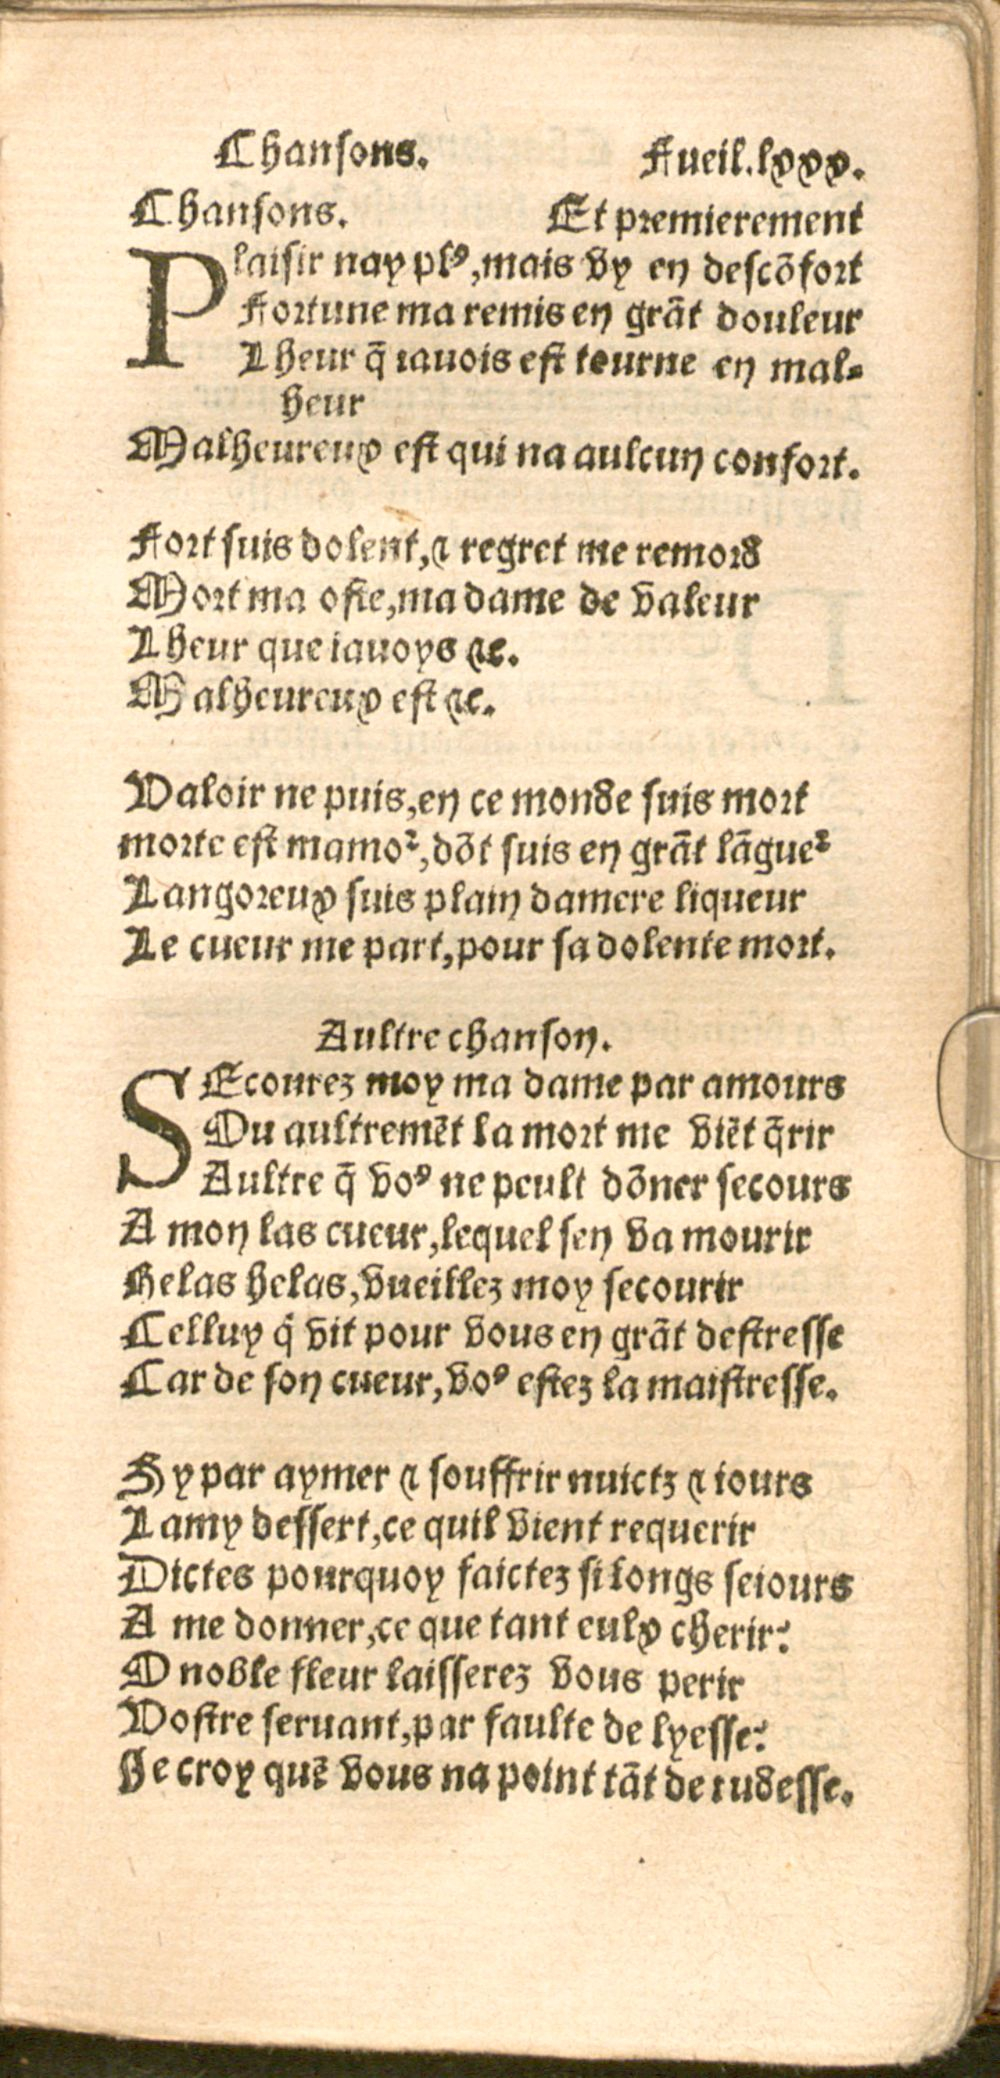 Chansons. Fueil. lxxx.
Chansons. Et premierement
Plaisir nay plꝰ, mais vy en descõfort
Fortune ma remis en grãt douleur
Lheur q̃ iauois est tourne en mal-
heur
Malheureux est qui na aulcun confort.
Fort suis dolent, ⁊ regret me remord
Mort ma oste, ma dame de valeur
Lheur que iauoys ⁊c.
Malheureux est ⁊c.
Valoir ne puis, en ce monde suis mort
morte est mamoᷣ, dõt suis en grãt lãgueᷣ
Langoreux suis plain damere liqueur
Le cueur me part, pour sa dolente mort.
Aultre chanson.
SEcourez moy ma dame par amours
Ou aultremẽt la mort me viẽt q̃rir
Aultre q̃ voꝰ ne peult dõner secours
A mon las cueur, lequel sen va mourir
Helas helas, vueillez moy secourir
Celluy q̇ vit pour vous en grãt destresse
Car de son cueur, voꝰ estez la maistresse.
Sy par aymer ⁊ souffrir nuictz ⁊ iours
Lamy dessert, ce quil vient requerir
Dictes pourquoy faictez si longs seiours
A me donner, ce que tant eulx cherir?
O noble fleur laisserez vous perir
Vostre seruant, par faulte de lyesse?
Je croy quẽ vous na point tãt de rudesse.